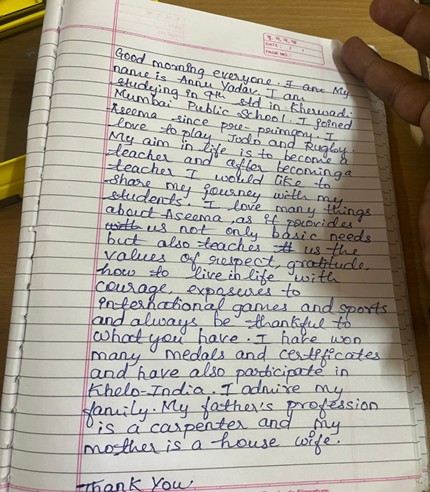 DATE : / /
PAGE NO.:
Good morning everyone. I am My
name is Annu Yadav. I am
studying in 9th std in Kherwadi
Mumbai Public School. I joined
Aseema since pre-primary. I
love to play Judo and Rugby.
My aim in life is to become a
teacher and after becoming a
teacher I would like to
share my journey with my
students. I love many things
about Aseema, as it provides
with us not only basic needs
but also teaches it us the
values of respect, gratitude,
how to live in life with
courage, exposures to
international games and sports
and always be thankful to
what you have. I have won
many medals and certificates
and have also participate in
Khelo-India. I admire my
family. My father's profession
is a carpenter and my
mother is a house wife.
Thank You.